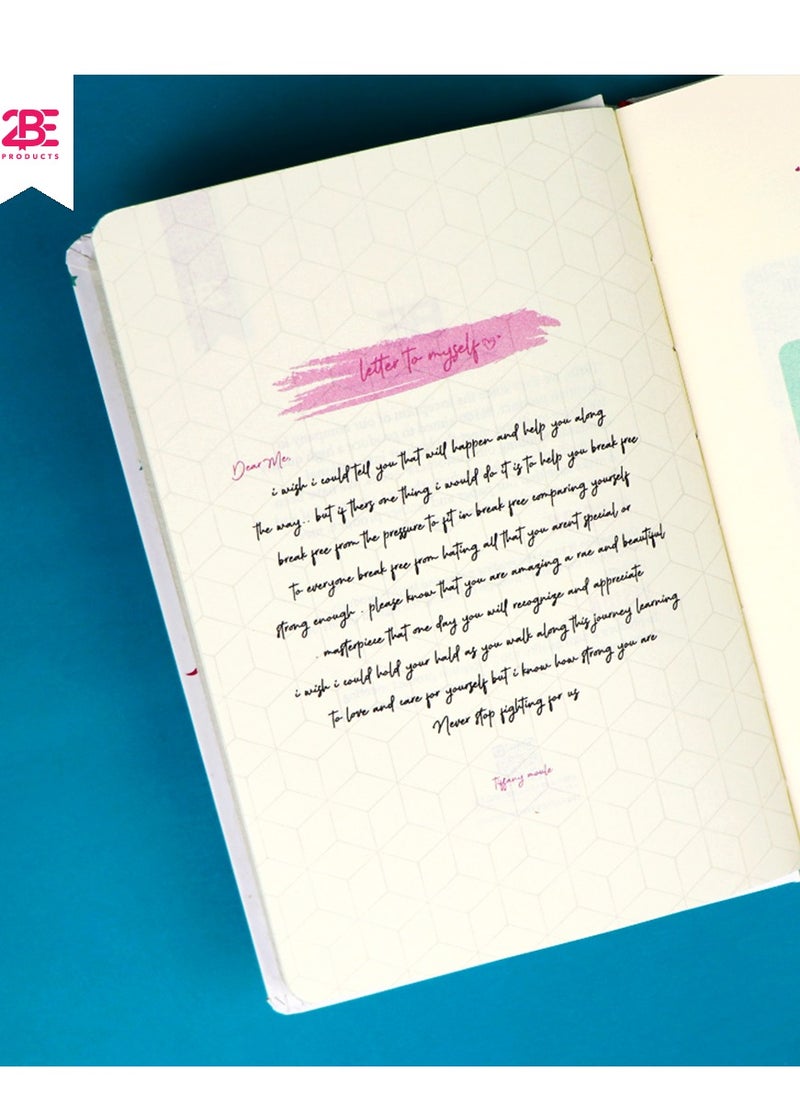 2BE
PRODUCTS
letter to myself
Dear Me,
i wish i could tell you that will happen and help you along
the way.. but if thers one thing i would do it is to help you break free
break free from the pressure to fit in break free comparing yourself
to everyone break free from hating all that you arent special or
strong enough . please know that you are amazing a rae and beautiful
. masterpiece that one day you will recognize and appreciate
i wish i could hold your hald as you walk along this journey learning
to love and care for yourself but i know how strong you are
Never stop fighting for us
Tiffany moule